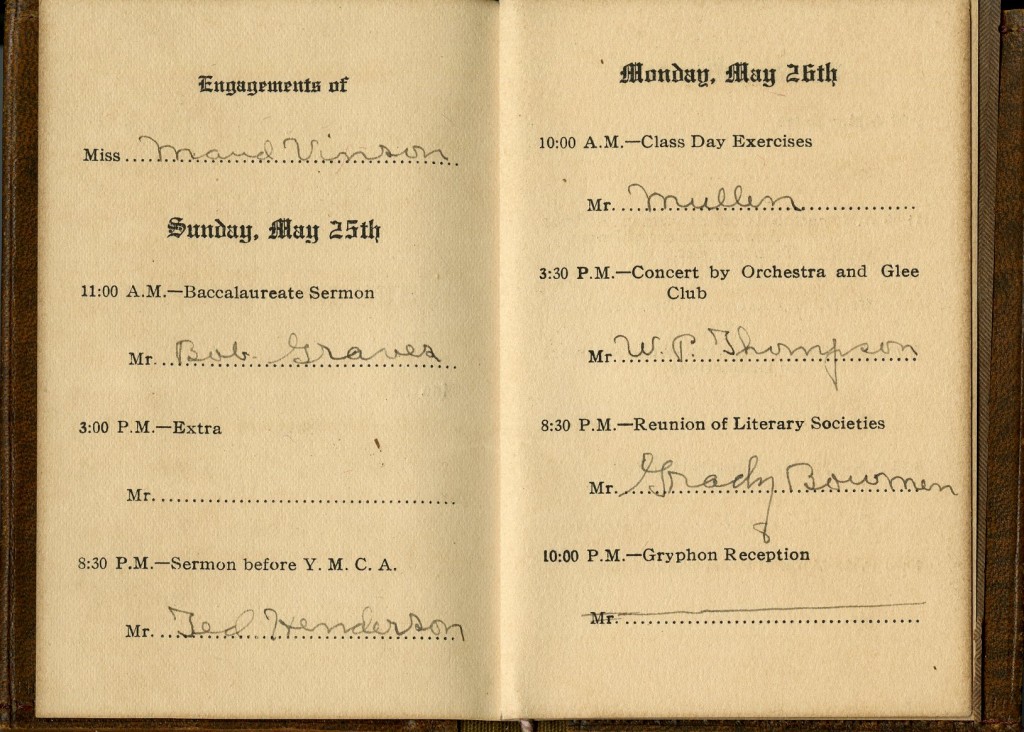 Engagements of
Miss Maud Vinson
Sunday, May 25th
11:00 A.M.—Baccalaureate Sermon
Mr. Bob Graves
3:00 P.M.—Extra
Mr.
8:30 P.M.—Sermon before Y. M. C. A.
Mr. Ted Henderson
Monday, May 26th
10:00 A.M.—Class Day Exercises
Mr. Mullen
3:30 P.M.—Concert by Orchestra and Glee
Club
Mr. W. P. Thompson
8:30 P.M.—Reunion of Literary Societies
Mr. Grady Bowmen
10:00 P.M.—Gryphon Reception
Mr.